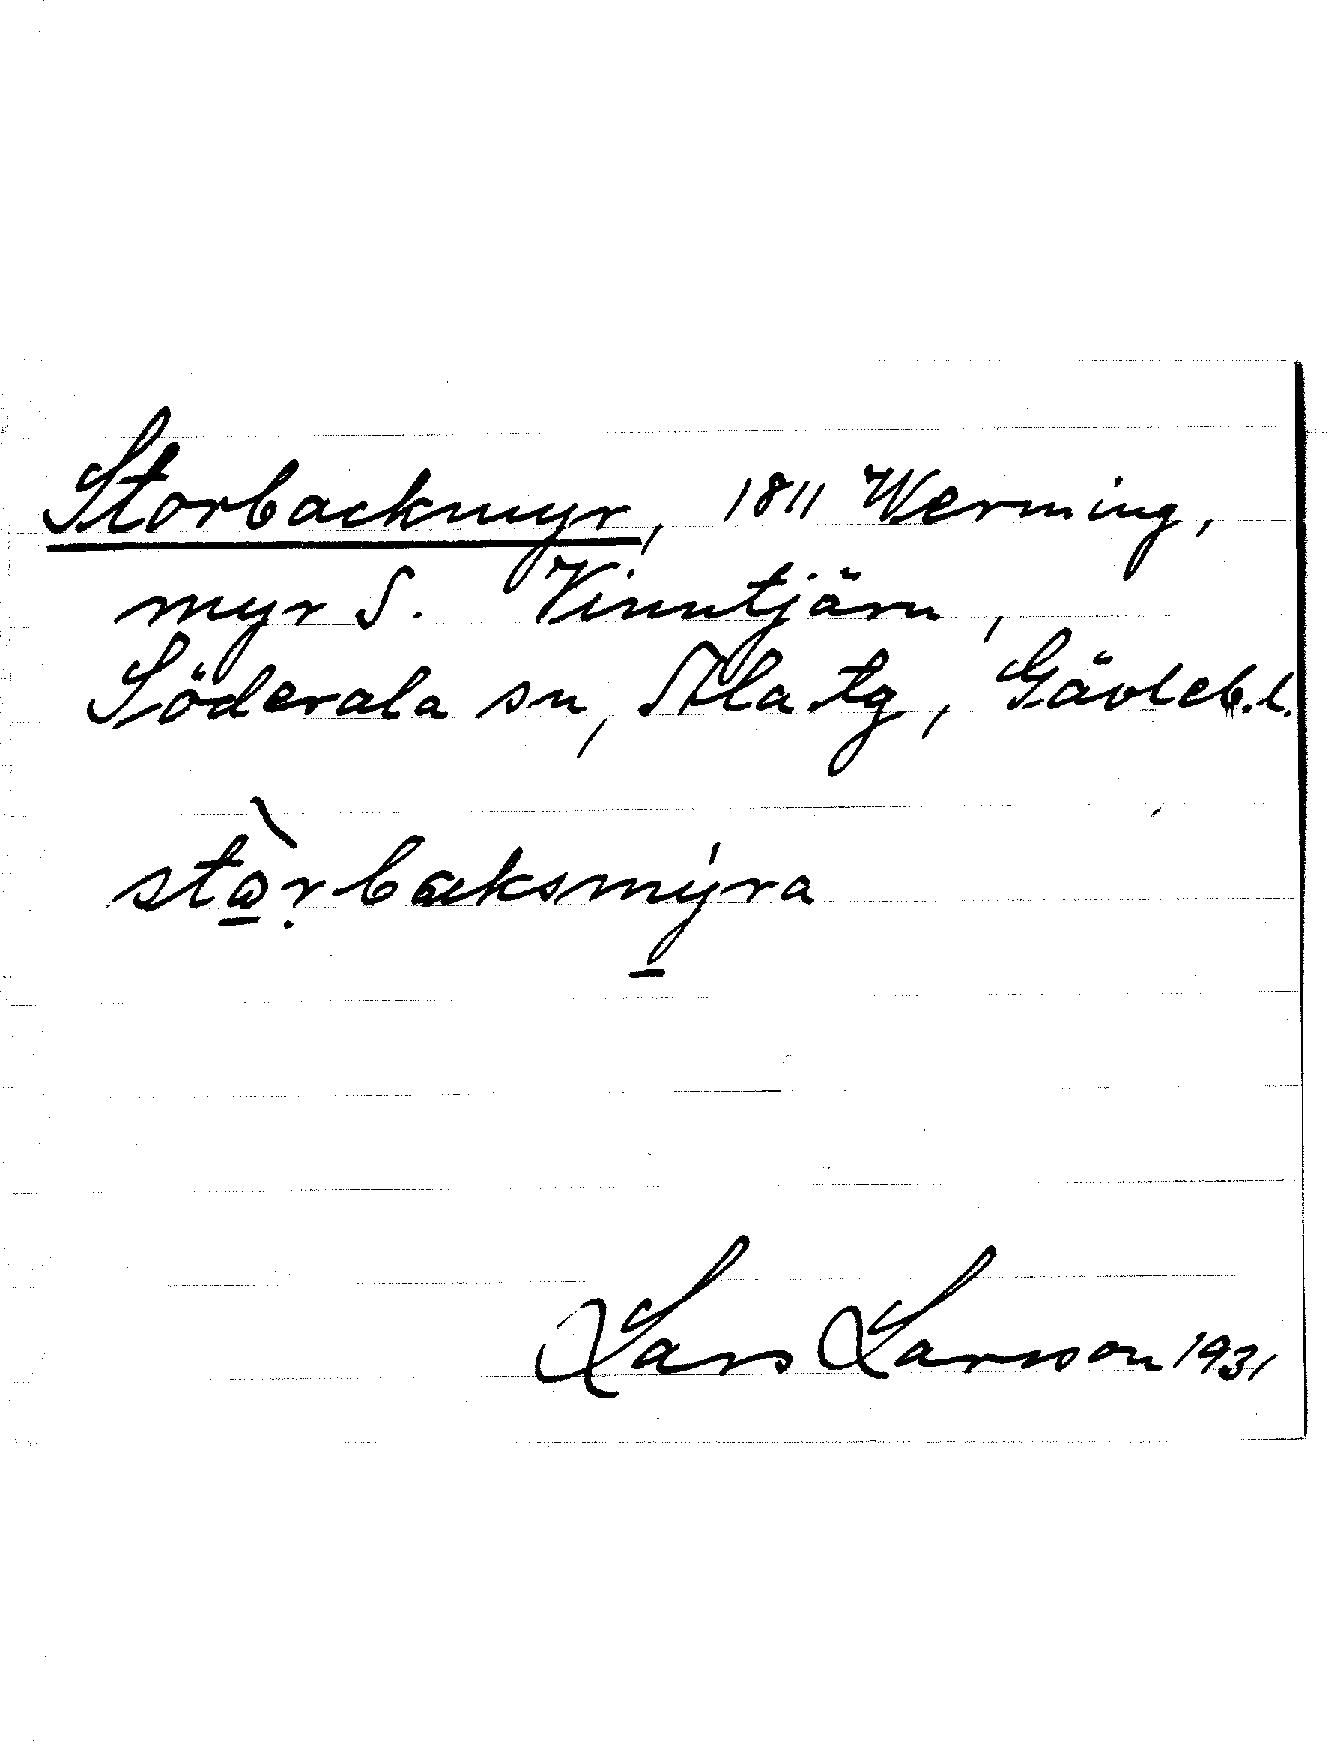 Storbackmyr, 1811 Werming,
myr S. Vinntjärn,
Söderala sn, Ala tg, Gävleb.l.
stòrbaksmýra
Lars Larsson 1931